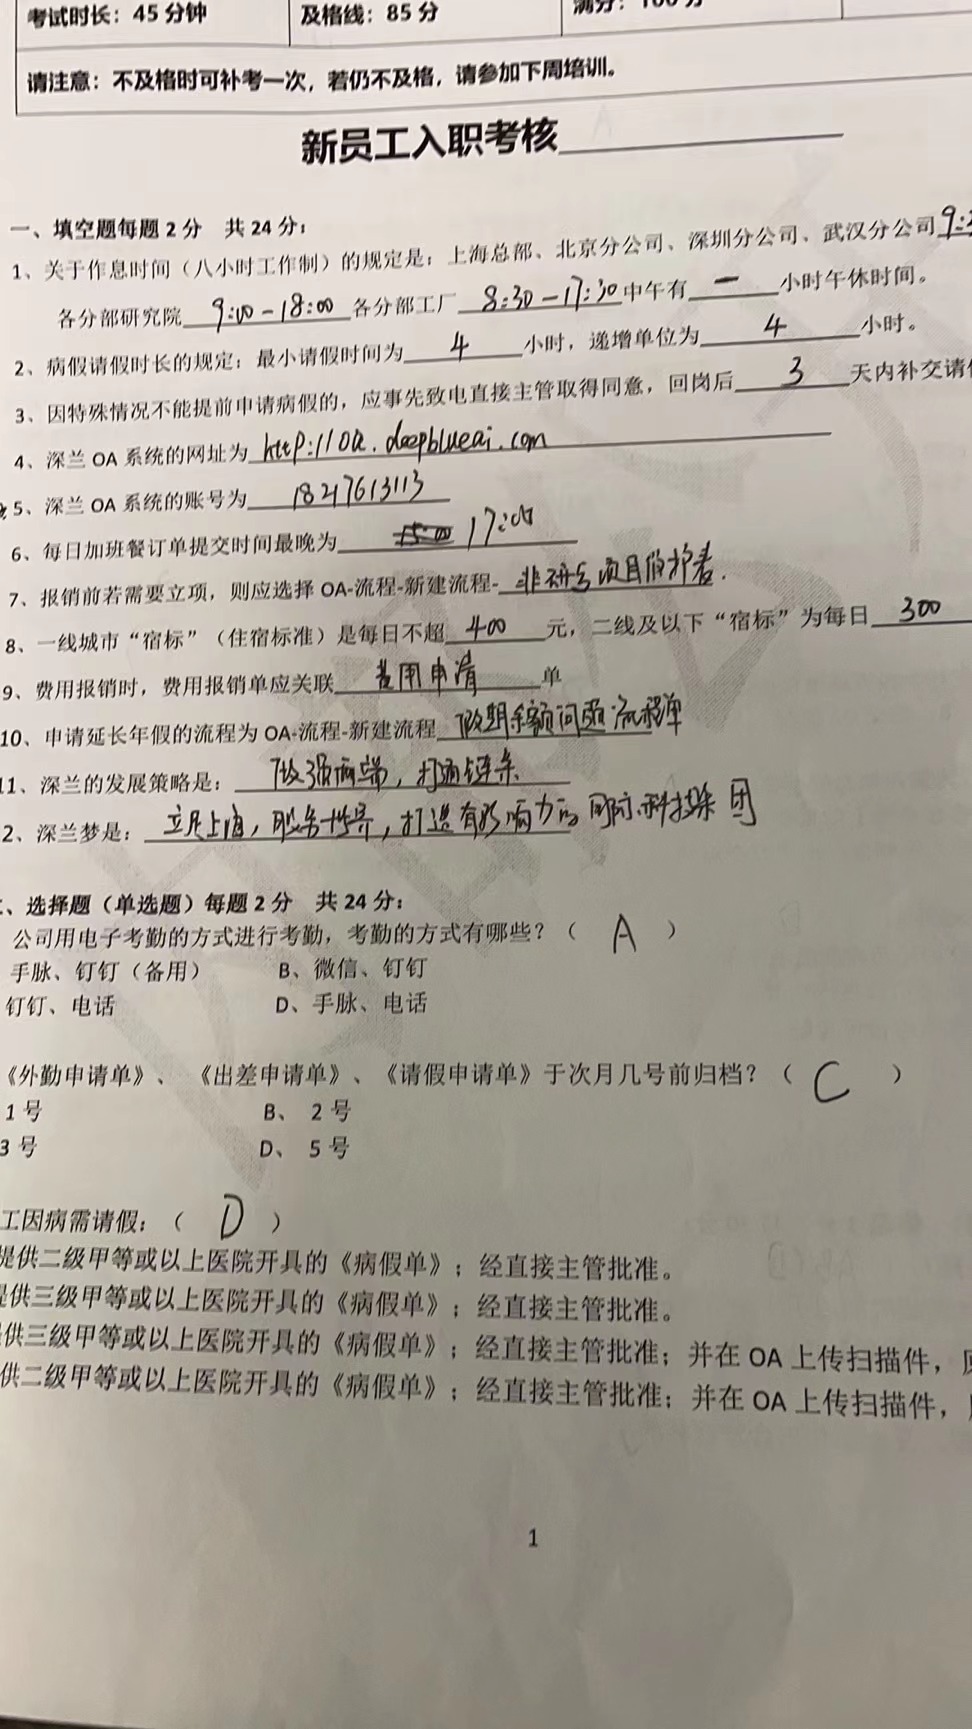 考试时长：45 分钟 及格线：85 分 满分：100 分
请注意：不及格时可补考一次，若仍不及格，请参加下周培训。
新员工入职考核
一、填空题每题 2 分 共 24 分：
1、关于作息时间（八小时工作制）的规定是：上海总部、北京分公司、深圳分公司、武汉分公司 9:3
各分部研究院 9:00-18:00 各分部工厂 8:30-17:30 中午有 一 小时午休时间。
2、病假请假时长的规定：最小请假时间为 4 小时，递增单位为 4 小时。
3、因特殊情况不能提前申请病假的，应事先致电直接主管取得同意，回岗后 3 天内补交请
4、深兰 OA 系统的网址为 http://oa.deepblueai.com
5、深兰 OA 系统的账号为 18217613113
6、每日加班餐订单提交时间最晚为 17:00
7、报销前若需要立项，则应选择 OA-流程-新建流程- 非研专项目维护表.
8、一线城市“宿标”（住宿标准）是每日不超 400 元，二线及以下“宿标”为每日 300
9、费用报销时，费用报销单应关联 费用申请 单
10、申请延长年假的流程为 OA-流程-新建流程 假期余额问题流程单
11、深兰的发展策略是： 做强两端，打通链条
2、深兰梦是： 立足上海，服务世界，打造有影响力的国际科技集团
、选择题（单选题）每题 2 分 共 24 分：
公司用电子考勤的方式进行考勤，考勤的方式有哪些？（ A ）
手脉、钉钉（备用） B、微信、钉钉
钉钉、电话 D、手脉、电话
《外勤申请单》、《出差申请单》、《请假申请单》于次月几号前归档？（ C ）
1 号 B、 2 号
3 号 D、 5 号
工因病需请假：（ D ）
提供二级甲等或以上医院开具的《病假单》；经直接主管批准。
提供三级甲等或以上医院开具的《病假单》；经直接主管批准。
供三级甲等或以上医院开具的《病假单》；经直接主管批准；并在 OA 上传扫描件，
供二级甲等或以上医院开具的《病假单》；经直接主管批准；并在 OA 上传扫描件，
1